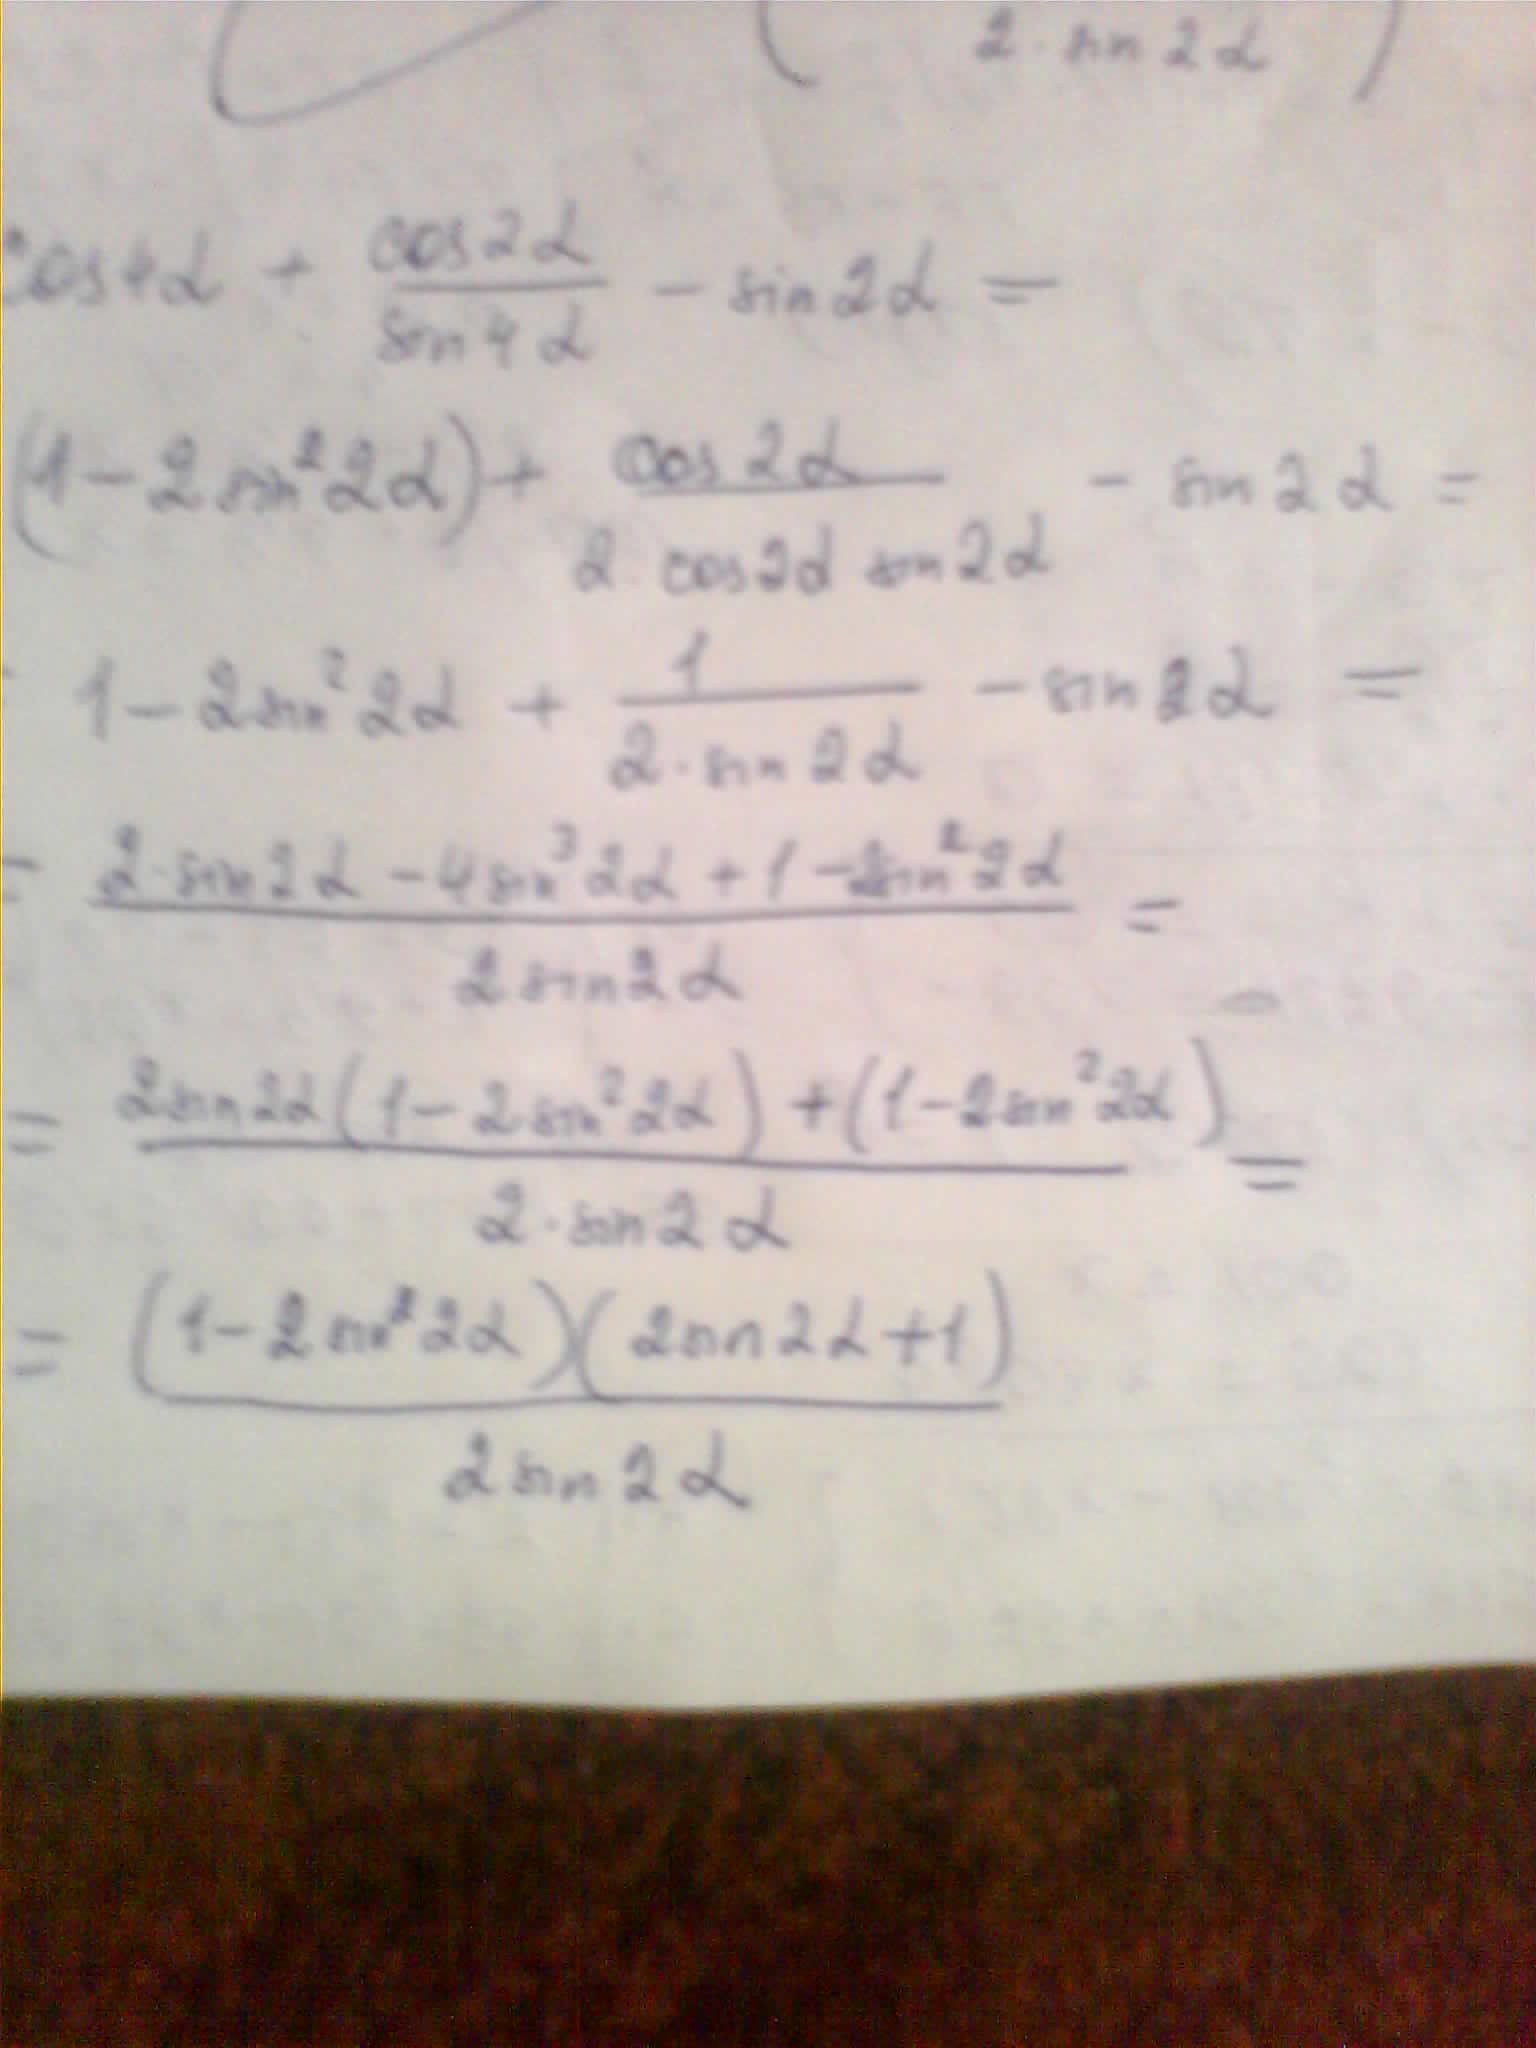 2 · sin 2α )
cos4α + cos2α / sin4α - sin2α =
(1 - 2sin²2α) + cos2α / 2 · cos2α sin2α - sin2α =
= 1 - 2sin²2α + 1 / 2 · sin2α - sin2α =
= 2 · sin2α - 4sin³2α + 1 - 2sin²2α / 2sin2α =
= 2sin2α(1 - 2sin²2α) + (1 - 2sin²2α) / 2 · sin2α =
= (1 - 2sin²2α)(2sin2α + 1) / 2sin2α